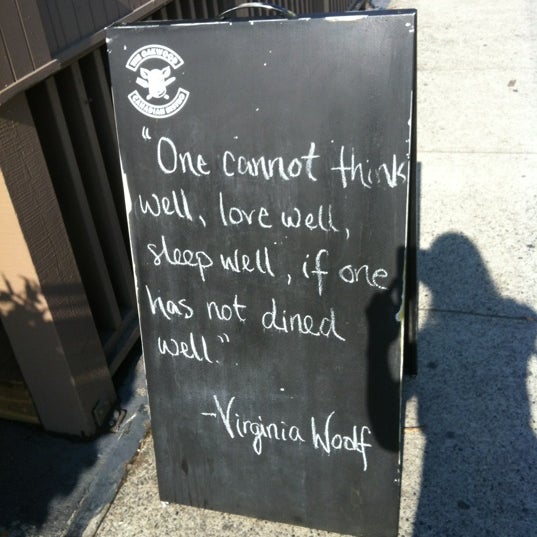 THE OAKWOOD
CANADIAN BISTRO
"One cannot think
well, love well,
sleep well, if one
has not dined
well."
-Virginia Woolf